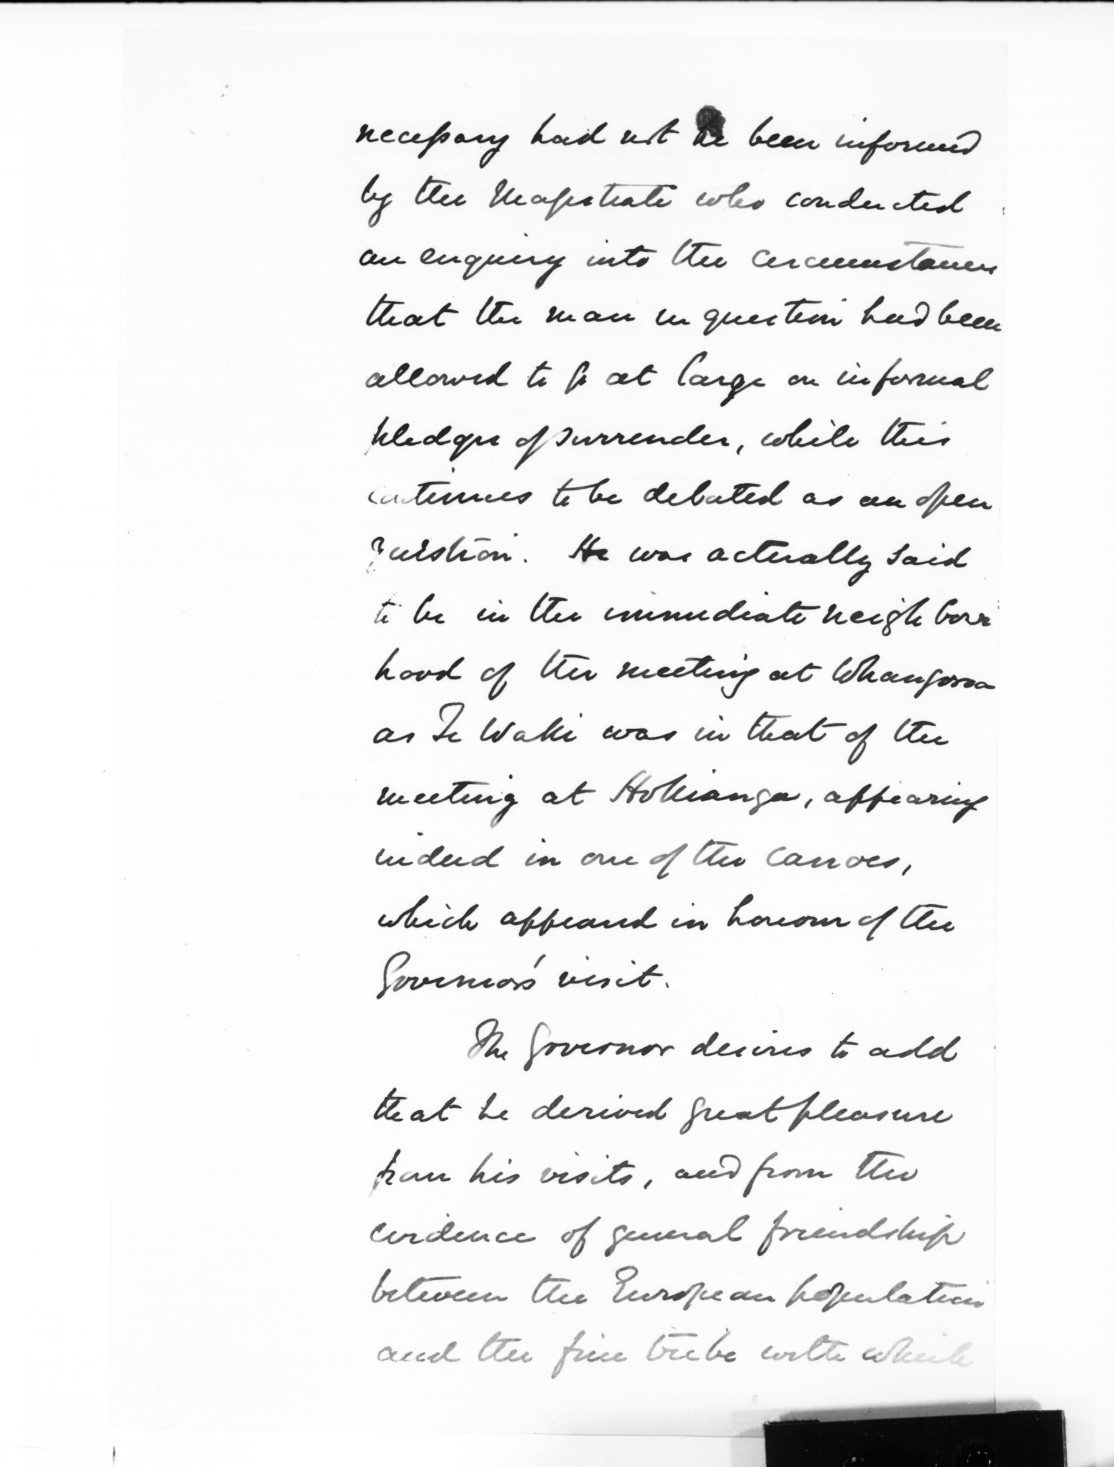 necessary had not he been informed
by the Magistrate who conducted
an enquiry into the circumstances
that the man in question had been
allowed to go at large on informal
pledges of surrender, while this
continues to be debated as an open
question. He was actually said
to be in the immediate neighbour
hood of the meeting at Whangaroa
as Te Waki was in that of the
meeting at Hokianga, appearing
indeed in one of the canoes,
which appeared in honour of the
Governor's visit.
The Governor desires to add
that he derived great pleasure
from his visits, and from the
evidence of general friendship
between the European population
and the fine tribe with which